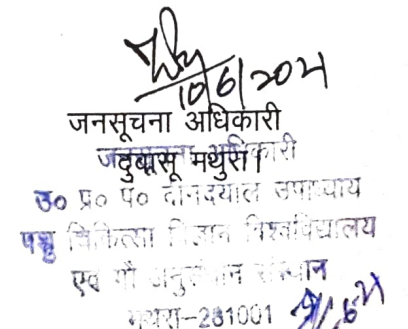 10/6/2021
जनसूचना अधिकारी
दुवासू मथुरा।
जनसूचना अधिकारी
उ० प्र० पं० दीनदयाल उपाध्याय
पशु चिकित्सा विज्ञान विश्वविद्यालय
एवं गौ अनुसंधान संस्थान
मथुरा-281001